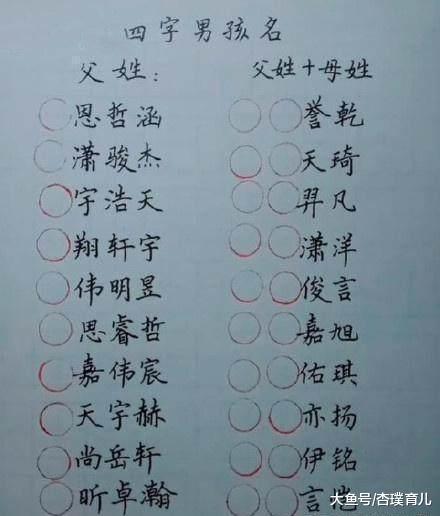 四字男孩名
父姓: 父姓+母姓
恩哲涵 誉乾
潇骏杰 天琦
宇浩天 羿凡
翔轩宇 潇洋
伟明昱 俊言
思睿哲 嘉旭
嘉伟宸 佑琪
天宇赫 亦扬
尚岳轩 伊铭
昕卓瀚 言恺
大鱼号/杏璞育儿